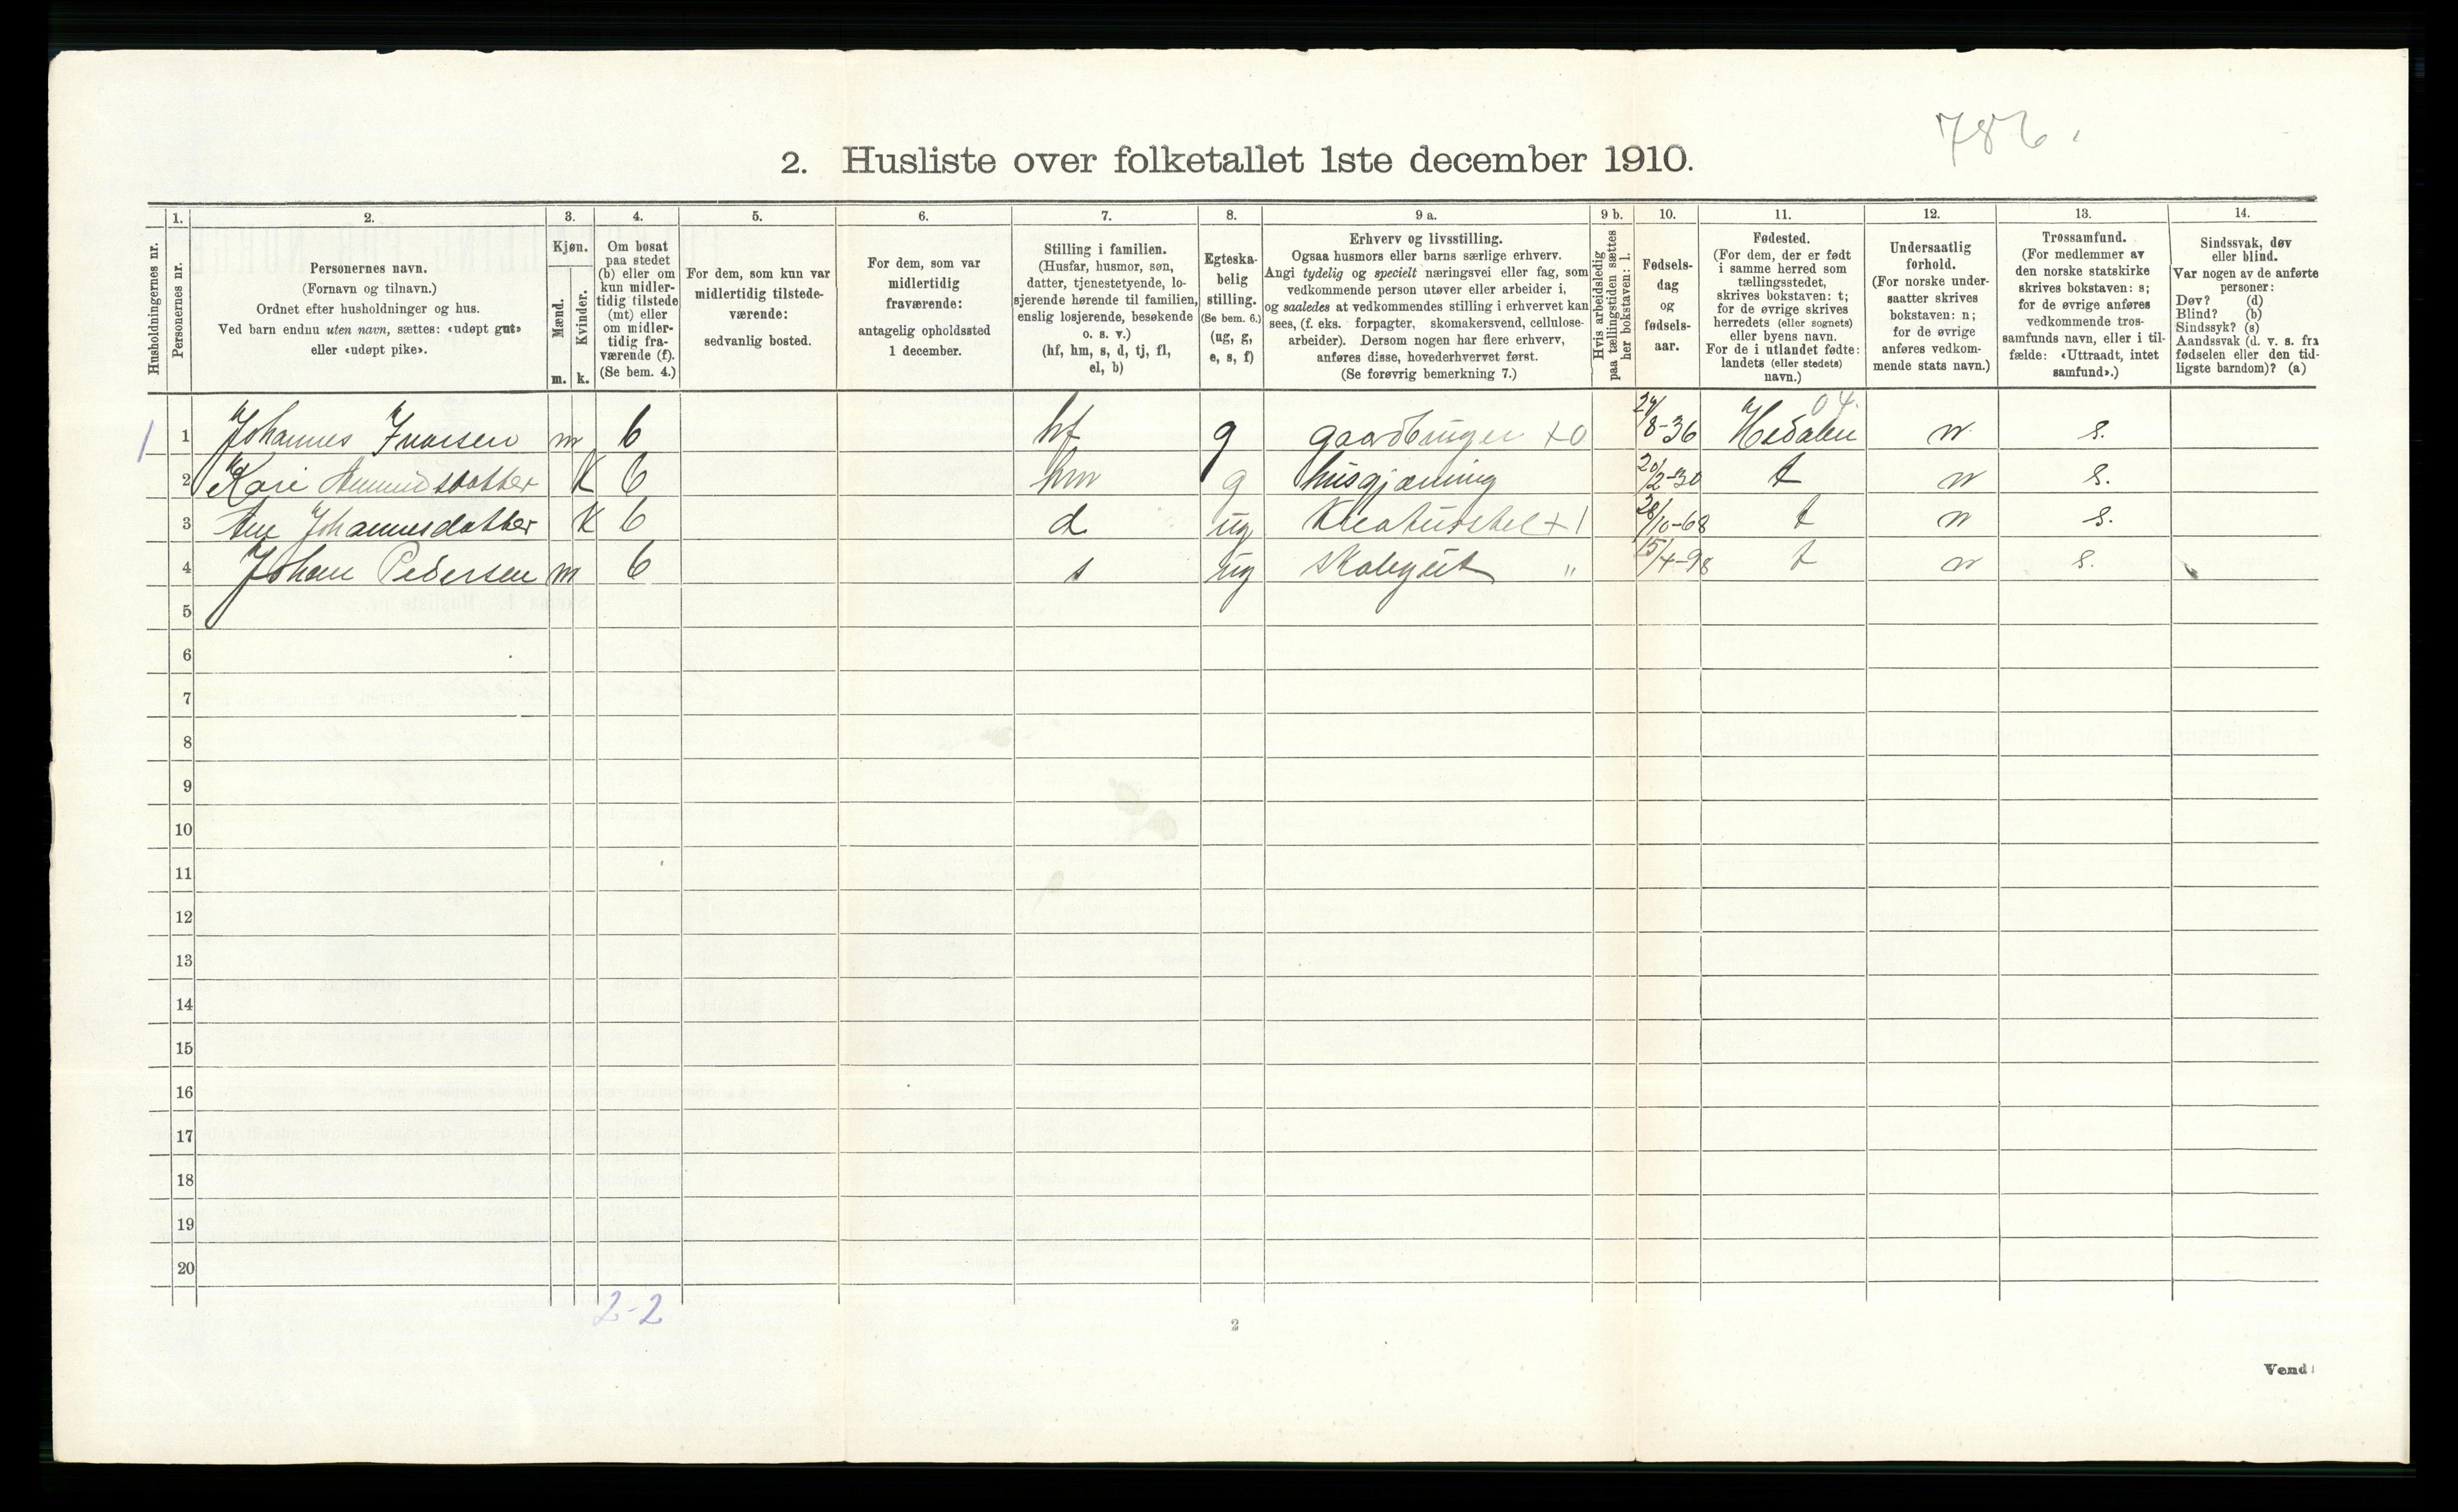 786.
2. Husliste over folketallet 1ste december 1910.
Husholdningernes nr.
1.
Personernes nr.
2.
Personernes navn.
(Fornavn og tilnavn.)
Ordnet efter husholdninger og hus.
Ved barn endnu uten navn, sættes: «udøpt gut»
eller «udøpt pike».
3.
Kjøn.
Mænd.
Kvinder.
m. k.
4.
Om bosat
paa stedet
(b) eller om
kun midler-
tidig tilstede
(mt) eller
om midler-
tidig fra-
værende (f).
(Se bem. 4.)
5.
For dem, som kun var
midlertidig tilstede-
værende:
sedvanlig bosted.
6.
For dem, som var
midlertidig
fraværende:
antagelig opholdssted
1 december.
7.
Stilling i familien.
(Husfar, husmor, søn,
datter, tjenestetyende, lo-
sjerende hørende til familien,
enslig losjerende, besøkende
o. s. v.)
(hf, hm, s, d, tj, fl,
el, b)
8.
Egteska-
belig
stilling.
(Se bem. 6.)
(ug, g,
e, s, f)
9 a.
Erhverv og livsstilling.
Ogsaa husmors eller barns særlige erhverv.
Angi tydelig og specielt næringsvei eller fag, som
vedkommende person utøver eller arbeider i,
og saaledes at vedkommendes stilling i erhvervet kan
sees, (f. eks. forpagter, skomakersvend, cellulose-
arbeider). Dersom nogen har flere erhverv,
anføres disse, hovederhvervet først.
(Se forøvrig bemerkning 7.)
9 b.
Hvis arbeidsledig
paa tællingstiden sættes
her bokstaven: l.
10.
Fødsels-
dag
og
fødsels-
aar.
11.
Fødested.
(For dem, der er født
i samme herred som
tællingsstedet,
skrives bokstaven: t;
for de øvrige skrives
herredets (eller sognets)
eller byens navn.
For de i utlandet fødte:
landets (eller stedets)
navn.)
12.
Undersaatlig
forhold.
(For norske under-
saatter skrives
bokstaven: n;
for de øvrige
anføres vedkom-
mende stats navn.)
13.
Trossamfund.
(For medlemmer av
den norske statskirke
skrives bokstaven: s;
for de øvrige anføres
vedkommende tros-
samfunds navn, eller i til-
fælde: «Uttraadt, intet
samfund».)
14.
Sindssvak, døv
eller blind.
Var nogen av de anførte
personer:
Døv? (d)
Blind? (b)
Sindssyk? (s)
Aandssvak (d. v. s. fra
fødselen eller den tid-
ligste barndom)? (a)
04.
1 1 Johannes Ivarsen m b hf g gaardbruger +0 24/8-36 Hedalen n s.
2 Kari Amundsdatter K b hm g husgjærning 20/2-30 t n s.
3 Ane Johannesdatter K b d ug Kreaturstel +1 28/10-68 t n s.
4 Johan Pedersen m b s ug Skolegut " 15/4-98 t n s.
5
6
7
8
9
10
11
12
13
14
15
16
17
18
19
20
2-2
2
Vend!